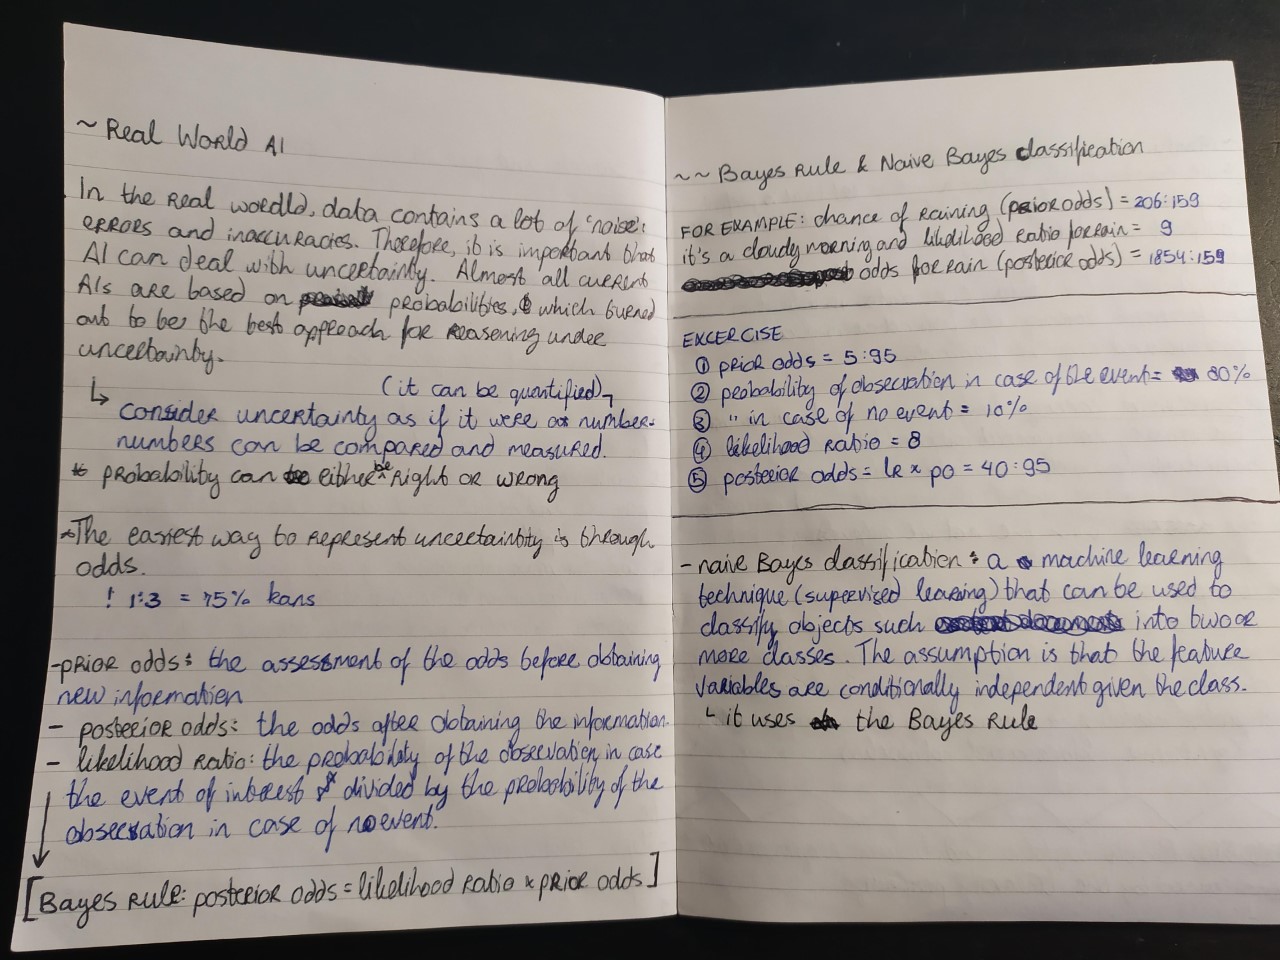 ~ Real World AI
In the Real woerld, data contains a lot of 'noise':
errors and inaccuracies. Therefore, it is important that
AI can deal with uncertainty. Almost all current
AIs are based on probabilities, which turned
out to be the best approach for reasoning under
uncertainty.
(it can be quantified)
↳ consider uncertainty as if it were number:
numbers can be compared and measured.
* probability can either be right or wrong
*The easiest way to represent uncertaintity is through
odds.
! 1:3 = 75% kans
-prior odds: the assessment of the odds before obtaining
new information
- posterior odds: the odds after obtaining the information.
- likelihood ratio: the probability of the observation in case
the event of interest divided by the probability of the
observation in case of no event.
[Bayes rule: posterior odds = likelihood ratio x prior odds]
~ ~ Bayes rule & Naive Bayes classification
FOR EXAMPLE: chance of raining (prior odds) = 206:159
it's a cloudy morning and likelihood ratio for rain = 9
odds for rain (posterior odds) = 1854:159
EXCERCISE
① prior odds = 5:95
② probability of observation in case of the event = 80%
③ " in case of no event = 10%
④ likelihood ratio = 8
⑤ posterior odds = lr x po = 40:95
- naive Bayes classification: a machine learning
technique (supervised learning) that can be used to
classify objects such into two or
more classes. The assumption is that the feature
variables are conditionally independent given the class.
↳ it uses the Bayes Rule